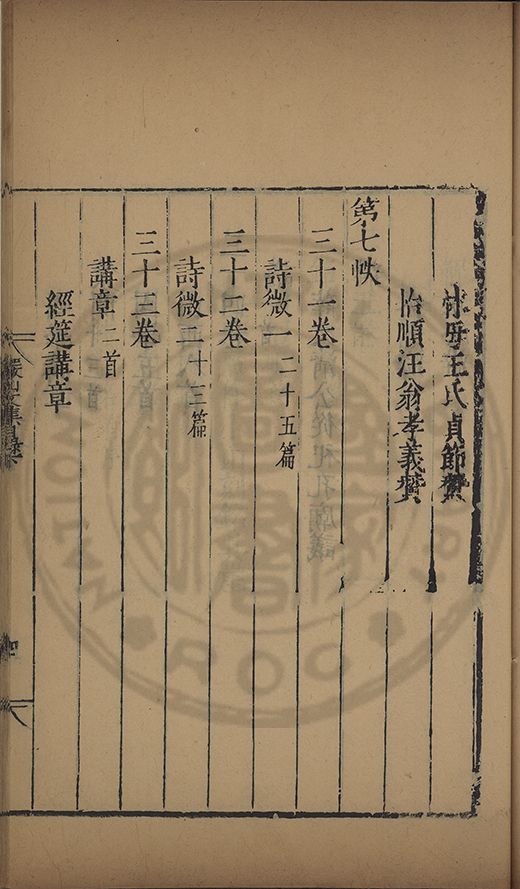 林母王氏貞節贊
怡順汪翁孝義贊
第七帙
三十一卷
詩微一二十五篇
三十二卷
詩微二十三篇
三十三卷
講章二首
經筵講章